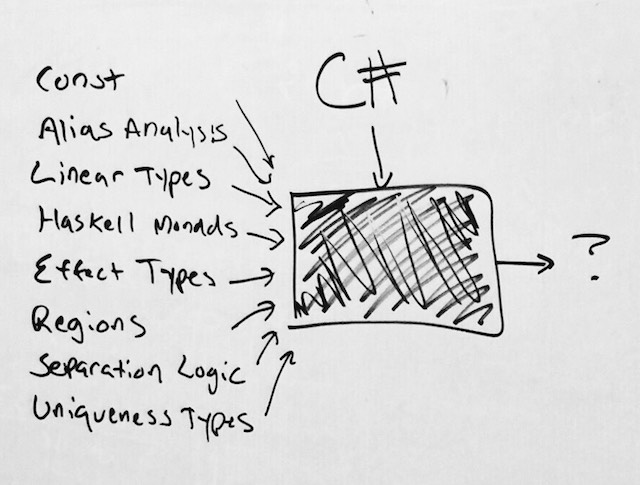 Const
C#
Alias Analysis
Linear Types
Haskell Monads
Effect Types
Regions
Separation Logic
Uniqueness Types
?